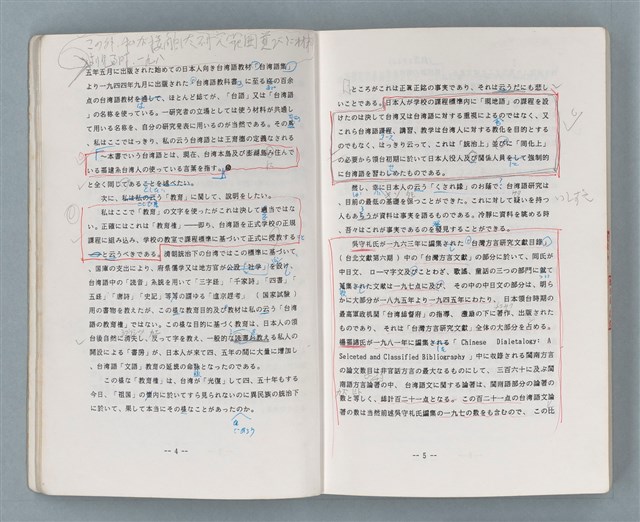 五年五月に出版された始めての日本人向き台湾語教材「台湾語集」
より一九四四年九月に出版された「台湾語教科書」に至る迄の百余
点の台湾語教材を通して、ほとんど総てが、「台語」又は「台湾語」
の名称を使っている。一研究者の立場としては使う材料が共通し
て用いる名称を、自分の研究発表に用いるのが当然である。その為
、私はここではっきり、私の云う台湾語とは王育徳の定義なされる
「一本書でいう台湾語とは、現在、台湾本島及び澎湖島み住んで
いる福建系台湾人の使っている言葉を指す。
と全く同じであることを述べたい。
次に、私は私の云う「教育」に関して、説明をしたい。
私はここで「教育」の文字を使ったがこれは決して適当ではな
い。正確にはこれは「教育権」──即ち、台湾語を正式学校の正規
課程に組み込み、学校の教室で課程標準に基いて正式に授教する
と云うべきである。清朝統治下の台湾ではこの標準に基いて、
、国庫の支出により、府県儒学又は地方官が公設「社学」を設け、
台湾語中の「読音」系統を用いて「三字経」「千家詩」「四書」「
五経」「唐詩」「史記」等等の謂ゆる「進京趕考」（国家試験）
用の書物を教えたが、この様な教育目的及び教材は私の云う「台湾
語の教育権」ではない。この様な目的に基づく教育は、日本人の領
台後自然に消失し、反って字を教え、一般的な読書を教える私人の
開設による「書房」が、日本人が来て四、五年の間に大量に増加し
、台湾語「文語」教育の延長の命脈となったのである。
この様な「教育権」は、台湾が「光復」して四、五十年もする
今日、「祖国」の懐内に於いてすら見られないのに異民族の統治下
に於いて、果して本当にその様なことがあったのか。
-- 4 --
ところがこれは正真正銘の事実であり、それは云うだにも悲し
いことである。日本人が学校の課程標準内に「現地語」の課程を設
けたのは決して台湾又は台湾語に対する重視によるのではなく、又
これら台湾語課程、講習、教学は台湾人に対する教化を目的とする
のでもなく、はっきり云って、これは「統治上」並びに「同化上」
の必要から領台初期に於いて日本人役人及び関係人員をして強制的
に台湾語を習わしめたものである。
然し、幸に日本人の云う「くされ縁」のお陰で、台湾語研究は
目前の最低の基礎を保つことができた。これに対して疑いを持つ
人もあろうが資料は事実を語るものである。冷静に資料を眺める時
、吾々はこれが事実であるのを発見することができる。
吳守礼氏が一九六三年に編集された「台湾方言研究文献目録」
（台北文献第六期）中の「台湾方言文献」の部分に於いて、同氏が
中日文、ローマ字文及びことわざ、歌謡、童話の三つの部門に就て
蒐集された文献は一九七点に及び、その中の中日文の部分は、明ら
かに大部分が一八九五年より一九四五年にわたり、日本領台時期の
最高軍政機関「台湾総督府」の指導、遷励の下に著作、出版された
ものであり、それは「台湾方言研究文献」全体の大部分を占める。
楊福綿氏が一九八一年に編集される「Chinese Dialetalogy: A
Selected and Classified Bibliography」中に収録される閩南方言
の論文数目は非官話方言の最大なるものにして、三百六十に及ぶ閩
南語方言論著の中、台湾語文に関する論著は、閩南語部分の論著の
数と等しく、総計百二十一点となる。この百二十一点の台湾語文論
著の数は当然前述吳守礼氏編集の一九七の数をも含むので、この比
-- 5 --